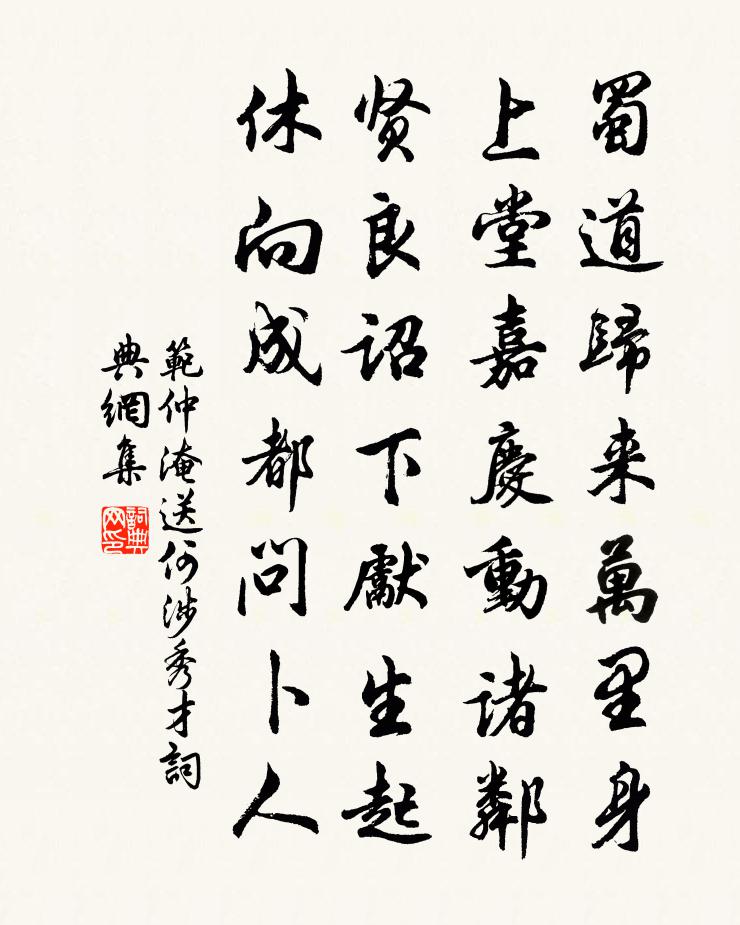 蜀道歸来萬里身
上堂嘉慶動諸鄰
贤良詔下獻生起
休向成都問卜人
範仲淹送何涉秀才詞
典網集
詞典
网印